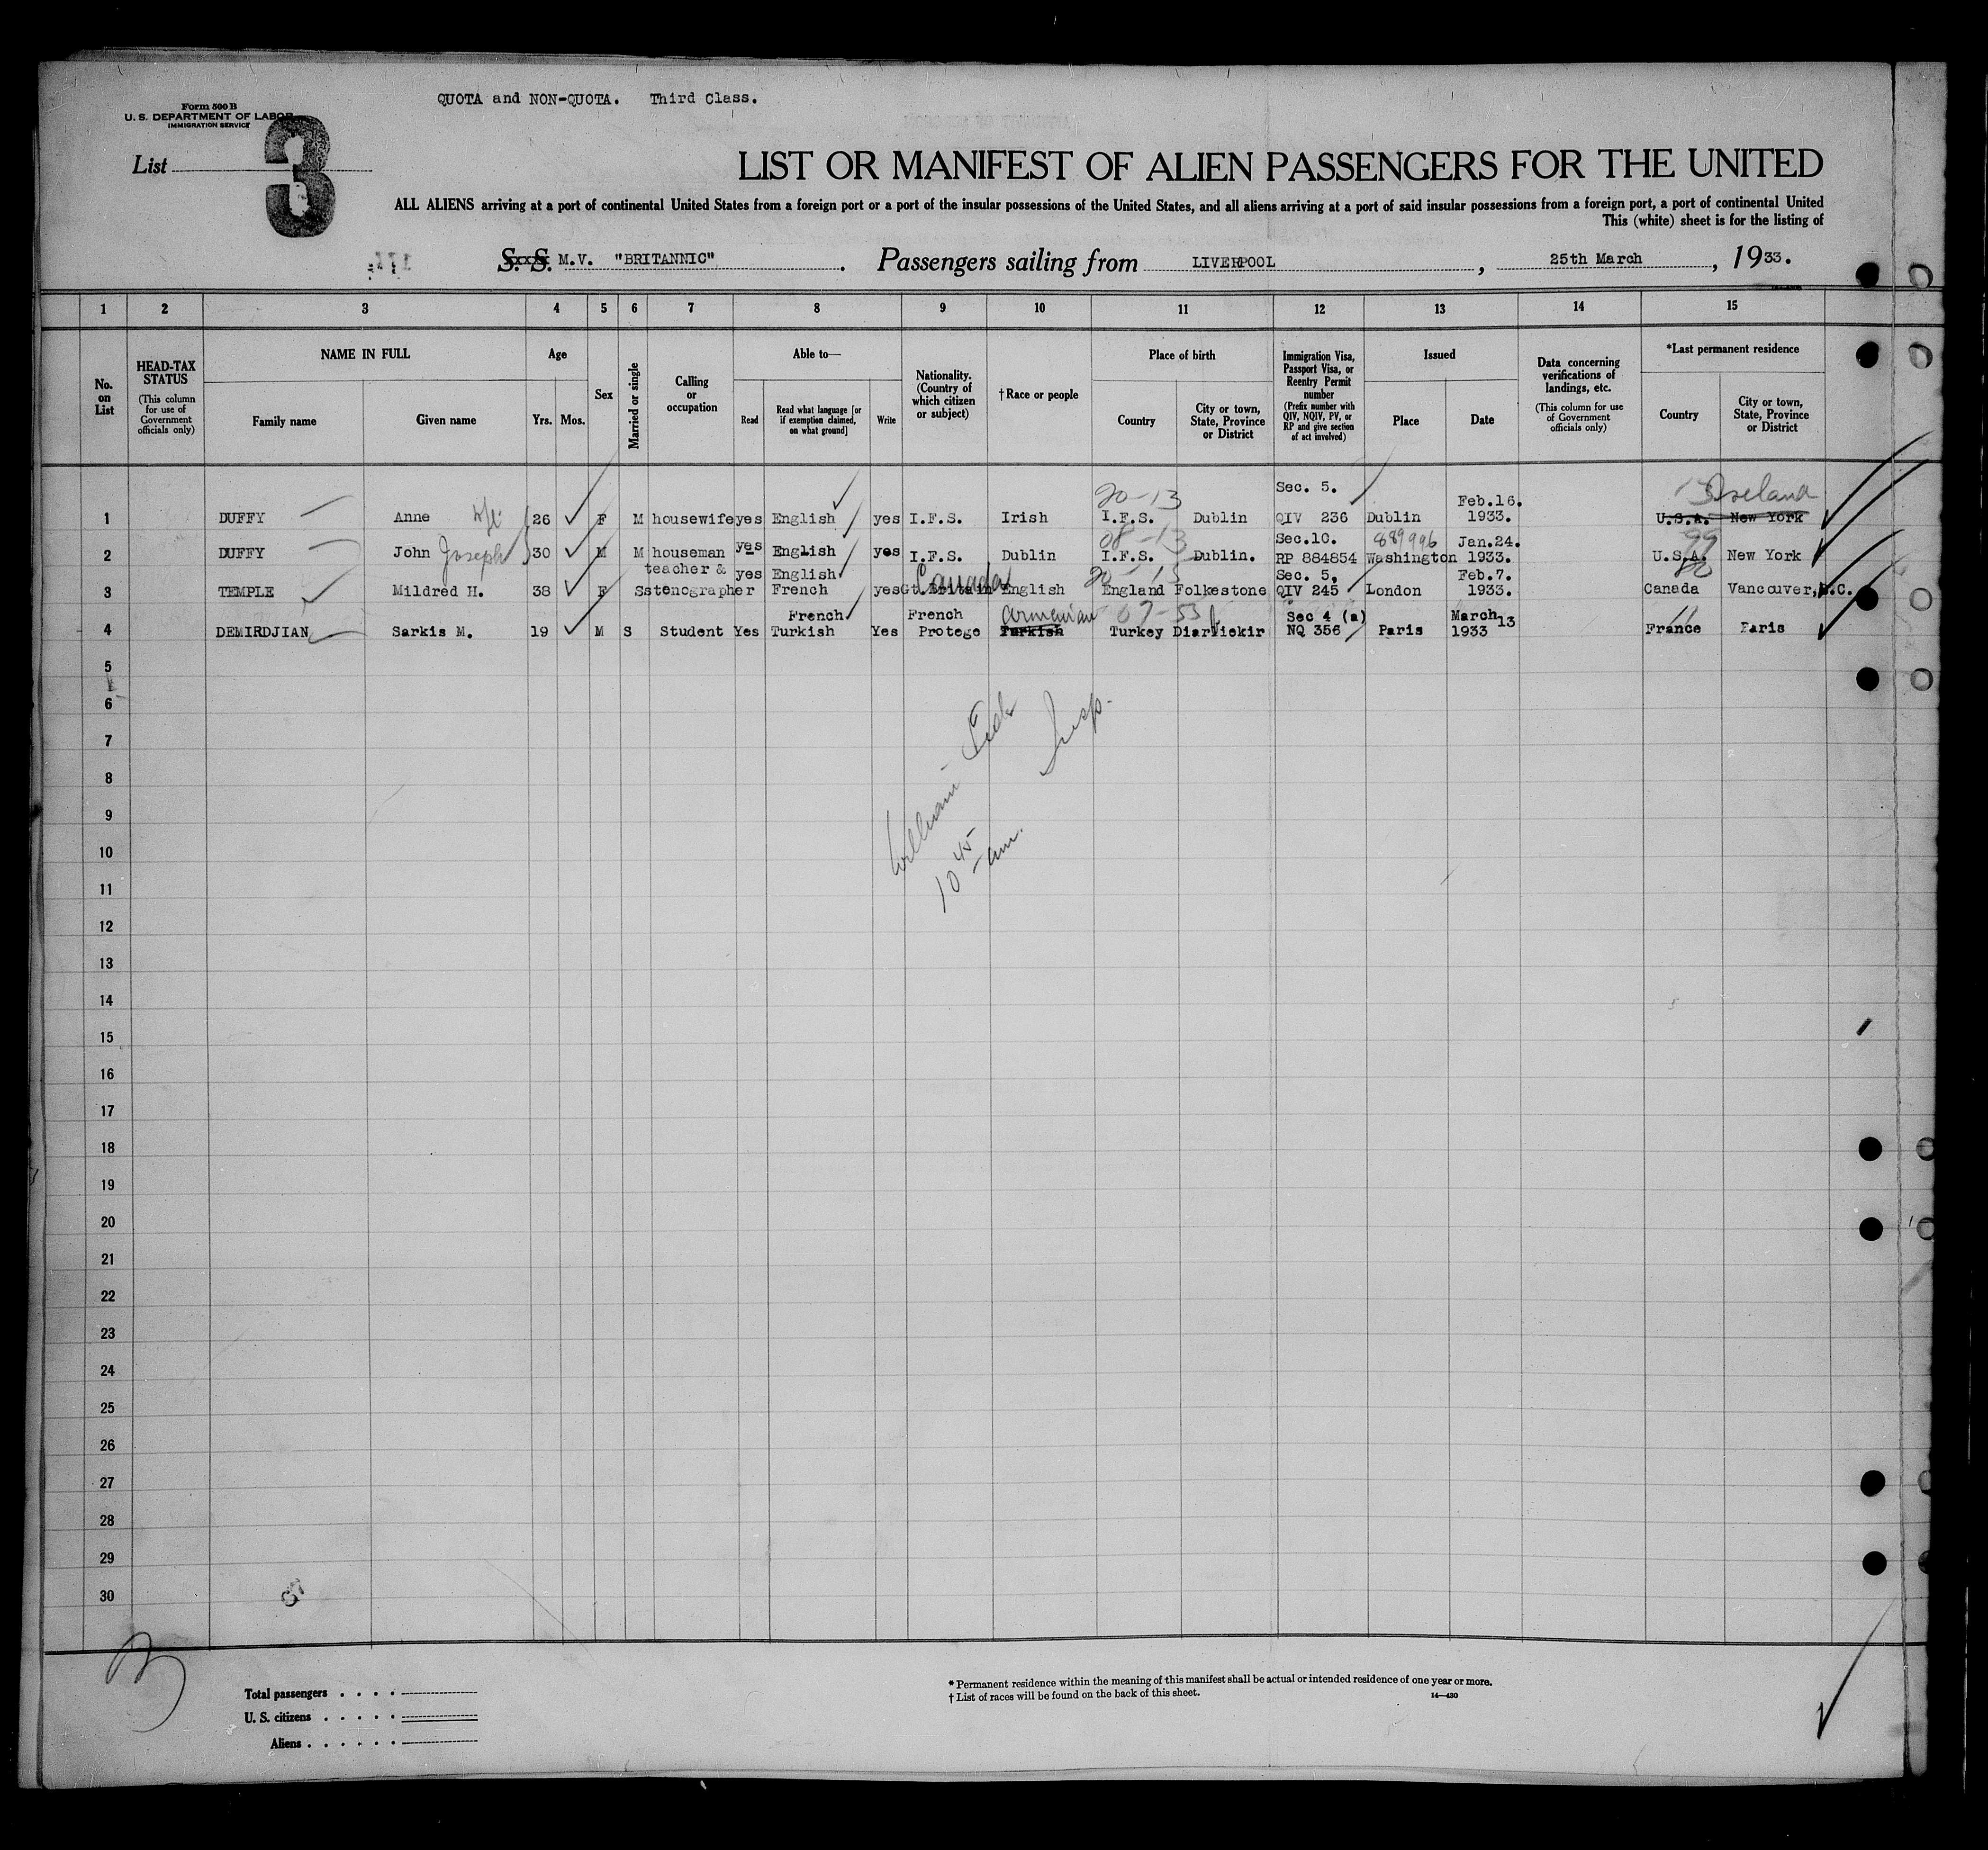 QUOTA and NON-QUOTA. Third Class.
Form 500 B
U. S. DEPARTMENT OF LABOR
IMMIGRATION SERVICE
List 3
LIST OR MANIFEST OF ALIEN PASSENGERS FOR THE UNITED
ALL ALIENS arriving at a port of continental United States from a foreign port or a port of the insular possessions of the United States, and all aliens arriving at a port of said insular possessions from a foreign port, a port of continental United
This (white) sheet is for the listing of
S. S. M.V. "BRITANNIC". Passengers sailing from LIVERPOOL, 25th March, 1933.
1 2 3 4 5 6 7 8 9 10 11 12 13 14 15
No. on List
HEAD-TAX STATUS
(This column for use of Government officials only)
NAME IN FULL
Family name
Given name
Age
Yrs. Mos.
Sex
Married or single
Calling or occupation
Able to—
Read
Read what language [or if exemption claimed, on what ground]
Write
Nationality. (Country of which citizen or subject)
†Race or people
Place of birth
Country
City or town, State, Province or District
Immigration Visa, Passport Visa, or Reentry Permit number
(Prefix number with QIV, NQIV, PV, or RP and give section of act involved)
Issued
Place
Date
Data concerning verifications of landings, etc.
(This column for use of Government officials only)
*Last permanent residence
Country
City or town, State, Province or District
20-13 Sec. 5. Feb.16. Ireland
1 DUFFY Anne 26 F M housewife yes English yes I.F.S. Irish I.F.S. Dublin QIV 236 Dublin 1933. U.S.A. New York
08-13 Sec.10. 889996 Jan.24. 99
2 DUFFY John Joseph 30 M M houseman yes English yes I.F.S. Dublin I.F.S. Dublin. RP 884854 Washington 1933. U.S.A. New York
teacher & yes English Canada 20-13 Sec. 5, Feb.7.
3 TEMPLE Mildred H. 38 F S stenographer French yes Gt.Britain English England Folkestone QIV 245 London 1933. Canada Vancouver, B.C.
French French Armenian 07-53 Sec 4 (a) March 13 11
4 DEMIRDJIAN Sarkis M. 19 M S Student Yes Turkish Yes Protege Turkish Turkey Diarbekir NQ 356 Paris 1933 France Paris
5
6
7
8
9
10
11
12
13
14
15
16
17
18
19
20
21
22
23
24
25
26
27
28
29
30
William Insp.
10 45 am.
Total passengers
U. S. citizens
Aliens
* Permanent residence within the meaning of this manifest shall be actual or intended residence of one year or more.
† List of races will be found on the back of this sheet.
14—430